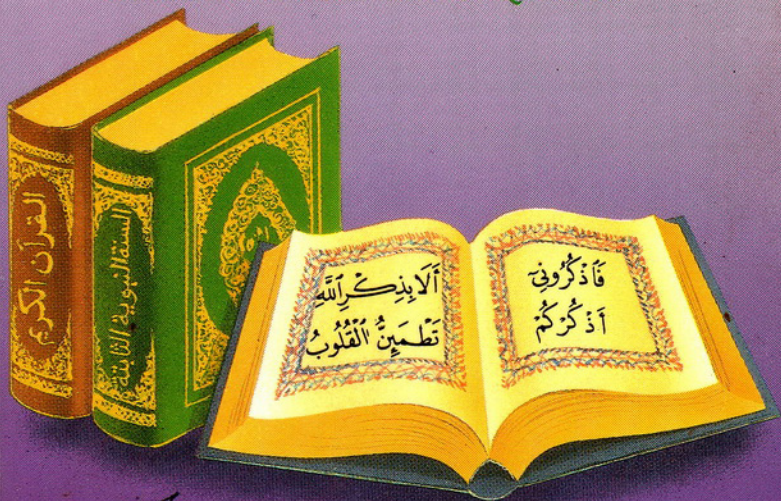 القرآن الكريم
السنة النبوية الثابتة
فَاذْكُرُونِيٓ
أَذْكُرْكُمْ
أَلَا بِذِكْرِ ٱللَّهِ
تَطْمَئِنُّ ٱلْقُلُوبُ